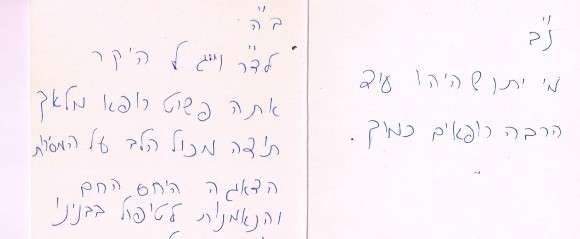 ב"ה
לד"ר וייגל היקר
אתה פשוט רופא מלאך
תודה מכול הלב על המסרות
הדאגה היחס החם
והנאמנות לטיפול בבניני
נ"ב
מי יתן שהיהו עוד
הרבה רופאים כמוך.